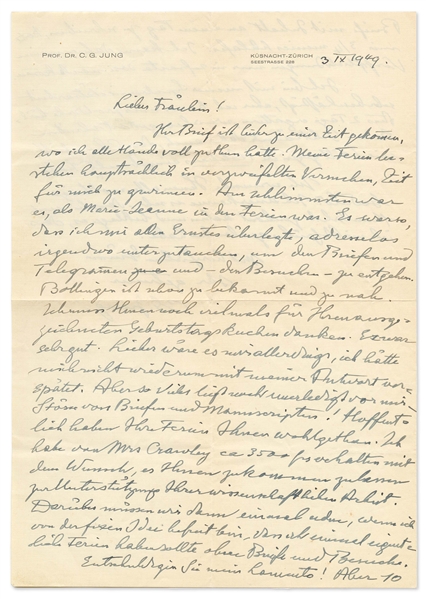 PROF. DR. C. G. JUNG
KÜSNACHT-ZÜRICH
SEESTRASSE 228
3 IX 1949.
Liebes Fräulein!
Ihr Brief ist leider zu einer Zeit gekommen,
wo ich alle Hände voll zu thun hatte. Meine Ferien be-
stehen hauptsächlich in verzweifelten Versuchen, Zeit
für mich zu gewinnen. Am schlimmsten war
es, als Marie-Jeanne in den Ferien war. Es war so,
dass ich mir allen Ernstes überlegte, adresslos
irgendwo unterzutauchen, um den Briefen und
Telegrammen und – den Besuchen – zu entgehen.
Bollingen ist schon zu bekannt und zu nah.
Ich muss Ihnen noch vielmals für Ihren ausge-
zeichneten Geburtstagskuchen danken. Er war
sehr gut. Lieber wäre es mir allerdings, ich hätte
mich nicht wiederum mit meiner Antwort ver-
spätet. Aber so vieles liegt noch unerledigt vor mir,
von Briefen und Manuscripten! Hoffent-
lich haben Ihre Ferien Ihnen wohlgethan. Ich
habe von Mrs Crowley ca 3500 frs erhalten mit
dem Wunsch, es Ihnen zukommen zu lassen
zur Unterstützung Ihrer wissenschaftlichen Arbeit.
Darüber müssen wir dann einmal reden, wenn ich
von der fixen Idee befreit bin, dass ich einmal eigent-
liche Ferien haben sollte ohne Briefe und Besuche.
Entschuldigen Sie mein Lamento! Aber 10